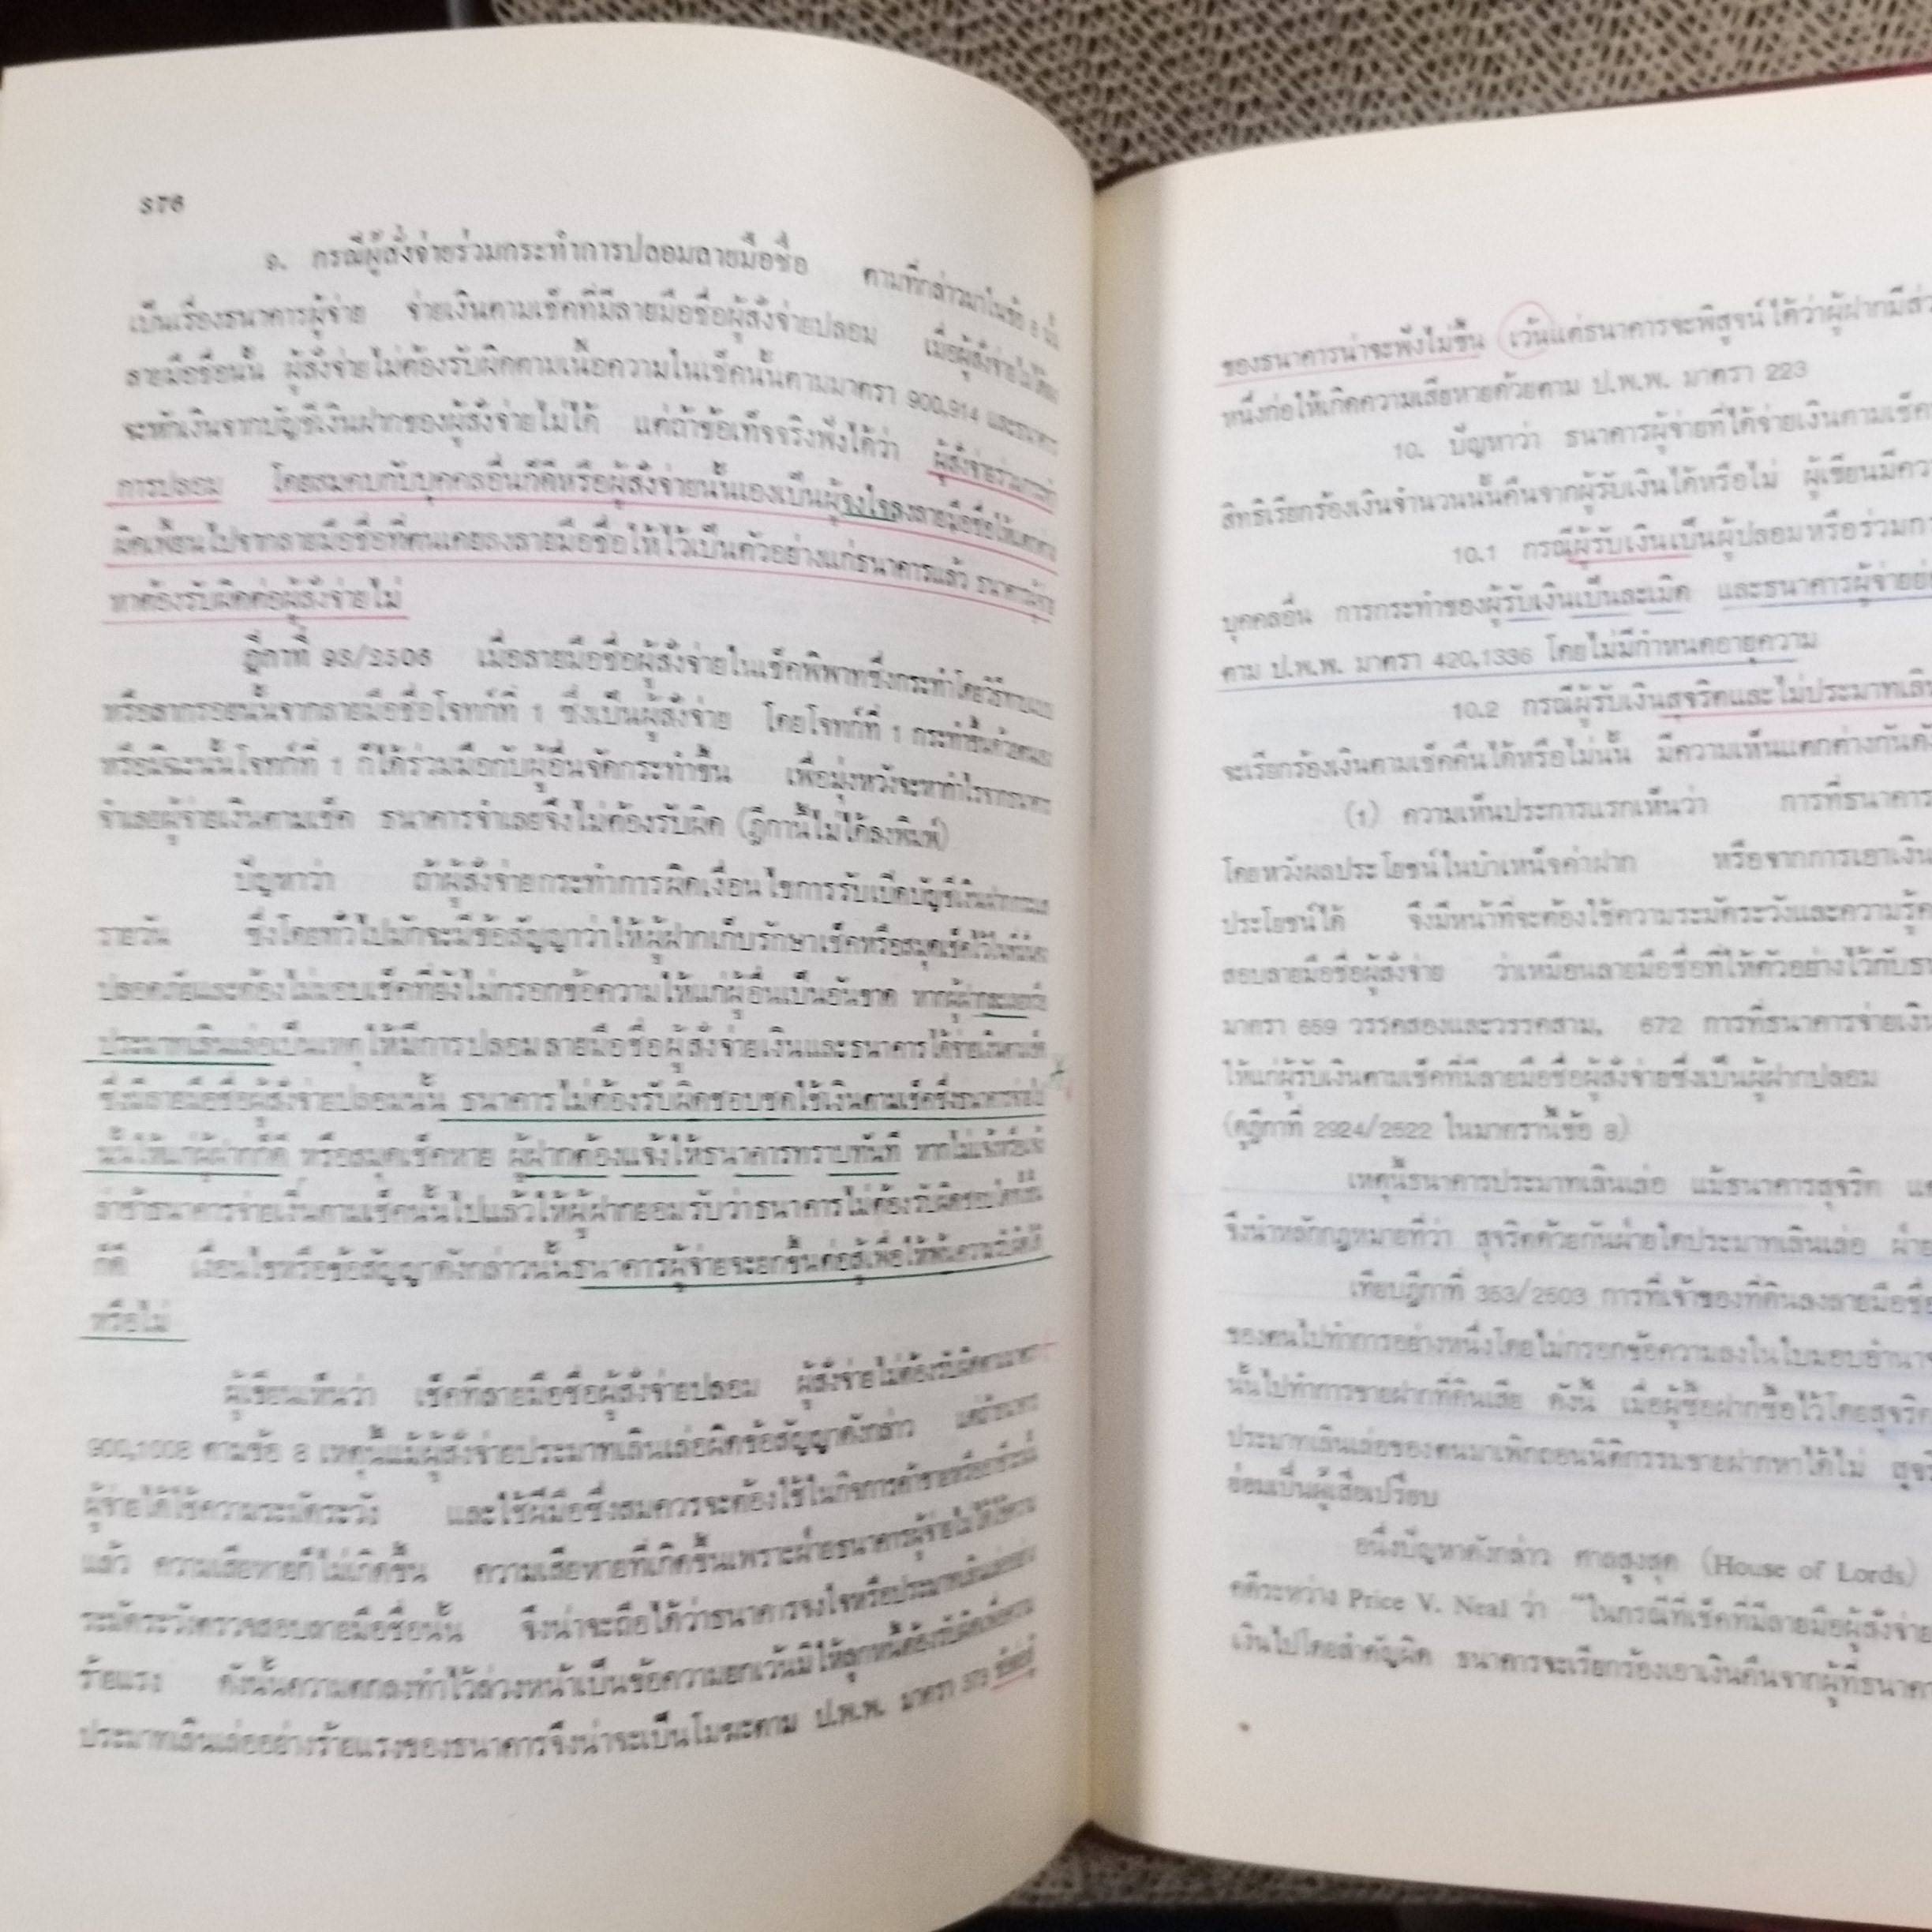 376
9. กรณีผู้สั่งจ่ายร่วมกระทำการปลอมลายมือชื่อ ตามที่กล่าวมาในข้อ 8 นั้น
เป็นเรื่องธนาคารผู้จ่าย จ่ายเงินตามเช็คที่มีลายมือชื่อผู้สั่งจ่ายปลอม เมื่อผู้สั่งจ่ายไม่ได้ลง
ลายมือชื่อนั้น ผู้สั่งจ่ายไม่ต้องรับผิดตามเนื้อความในเช็คนั้นตามมาตรา 900,914 และธนาคาร
จะหักเงินจากบัญชีเงินฝากของผู้สั่งจ่ายไม่ได้ แต่ถ้าข้อเท็จจริงฟังได้ว่า ผู้สั่งจ่ายร่วมกระทำ
การปลอม โดยสมคบกับบุคคลอื่นก็ดีหรือผู้สั่งจ่ายนั้นเองเป็นผู้จงใจลงลายมือชื่อให้แตกต่าง
ผิดเพี้ยนไปจากลายมือชื่อที่ตนเคยลงลายมือชื่อให้ไว้เป็นตัวอย่างแก่ธนาคารแล้ว ธนาคารผู้จ่าย
หาต้องรับผิดต่อผู้สั่งจ่ายไม่
ฎีกาที่ 93/2506 เมื่อลายมือชื่อผู้สั่งจ่ายในเช็คพิพาทซึ่งกระทำโดยวิธีทาบแบบ
หรือลากรอยนั้นจากลายมือชื่อโจทก์ที่ 1 ซึ่งเป็นผู้สั่งจ่าย โดยโจทก์ที่ 1 กระทำขึ้นด้วยตนเอง
หรือมิฉะนั้นโจทก์ที่ 1 ก็ได้ร่วมมือกับผู้อื่นจัดกระทำขึ้น เพื่อมุ่งหวังจะหากำไรจากธนาคาร
จำเลยผู้จ่ายเงินตามเช็ค ธนาคารจำเลยจึงไม่ต้องรับผิด (ฎีกานี้ไม่ได้ลงพิมพ์)
ปัญหาว่า ถ้าผู้สั่งจ่ายกระทำการผิดเงื่อนไขการรับเปิดบัญชีเงินฝากกระแส
รายวัน ซึ่งโดยทั่วไปมักจะมีข้อสัญญาว่าให้ผู้ฝากเก็บรักษาเช็คหรือสมุดเช็คไว้ในที่มั่นคง
ปลอดภัยและต้องไม่มอบเช็คที่ยังไม่กรอกข้อความให้แก่ผู้อื่นเป็นอันขาด หากผู้ฝากละเลยหรือ
ประมาทเลินเล่อเป็นเหตุให้มีการปลอมลายมือชื่อผู้สั่งจ่ายเงินและธนาคารได้จ่ายเงินตามเช็ค
ซึ่งมีลายมือชื่อผู้สั่งจ่ายปลอมนั้น ธนาคารไม่ต้องรับผิดชอบชดใช้เงินตามเช็คซึ่งธนาคารจ่ายไป
นั้นให้แก่ผู้ฝากก็ดี หรือสมุดเช็คหาย ผู้ฝากต้องแจ้งให้ธนาคารทราบทันที หากไม่แจ้งหรือแจ้ง
ล่าช้าธนาคารจ่ายเงินตามเช็คนั้นไปแล้วให้ผู้ฝากยอมรับว่าธนาคารไม่ต้องรับผิดชอบใดทั้งสิ้น
ก็ดี เงื่อนไขหรือข้อสัญญาดังกล่าวนั้นธนาคารผู้จ่ายจะยกขึ้นต่อสู้เพื่อให้พ้นความรับผิดได้
หรือไม่
ผู้เขียนเห็นว่า เช็คที่ลายมือชื่อผู้สั่งจ่ายปลอม ผู้สั่งจ่ายไม่ต้องรับผิดตามมาตรา
900,1008 ตามข้อ 8 เหตุนี้แม้ผู้สั่งจ่ายประมาทเลินเล่อผิดข้อสัญญาดังกล่าว แต่ถ้าธนาคาร
ผู้จ่ายได้ใช้ความระมัดระวัง และใช้ฝีมือซึ่งสมควรจะต้องใช้ในกิจการค้าขายหรืออาชีวะนี้
แล้ว ความเสียหายก็ไม่เกิดขึ้น ความเสียหายที่เกิดขึ้นเพราะฝ่ายธนาคารผู้จ่ายไม่ได้ใช้ความ
ระมัดระวังตรวจสอบลายมือชื่อนั้น จึงน่าจะถือได้ว่าธนาคารจงใจหรือประมาทเลินเล่ออย่าง
ร้ายแรง ดังนั้นความตกลงทำไว้ล่วงหน้าเป็นข้อความยกเว้นมิให้ลูกหนี้ต้องรับผิดเพื่อความ
ประมาทเลินเล่ออย่างร้ายแรงของธนาคารจึงน่าจะเป็นโมฆะตาม ป.พ.พ. มาตรา 373 ข้อต่อสู้
ของธนาคารน่าจะฟังไม่ขึ้น เว้นแต่ธนาคารจะพิสูจน์ได้ว่าผู้ฝากมีส่ว
หนึ่งก่อให้เกิดความเสียหายด้วยตาม ป.พ.พ. มาตรา 223
10. ปัญหาว่า ธนาคารผู้จ่ายที่ได้จ่ายเงินตามเช็ค
สิทธิเรียกร้องเงินจำนวนนั้นคืนจากผู้รับเงินได้หรือไม่ ผู้เขียนมีคว
10.1 กรณีผู้รับเงินเป็นผู้ปลอมหรือร่วมก
บุคคลอื่น การกระทำของผู้รับเงินเป็นละเมิด และธนาคารผู้จ่ายย่
ตาม ป.พ.พ. มาตรา 420,1336 โดยไม่มีกำหนดอายุความ
10.2 กรณีผู้รับเงินสุจริตและไม่ประมาทเลิน
จะเรียกร้องเงินตามเช็คคืนได้หรือไม่นั้น มีความเห็นแตกต่างกันดั
(1) ความเห็นประการแรกเห็นว่า การที่ธนาคาร
โดยหวังผลประโยชน์ในบำเหน็จค่าฝาก หรือจากการเอาเงิน
ประโยชน์ได้ จึงมีหน้าที่จะต้องใช้ความระมัดระวังและความรู้ค
สอบลายมือชื่อผู้สั่งจ่าย ว่าเหมือนลายมือชื่อที่ให้ตัวอย่างไว้กับธ
มาตรา 659 วรรคสองและวรรคสาม, 672 การที่ธนาคารจ่ายเงิน
ให้แก่ผู้รับเงินตามเช็คที่มีลายมือชื่อผู้สั่งจ่ายซึ่งเป็นผู้ฝากปลอม
(ดูฎีกาที่ 2924/2522 ในมาตรานี้ข้อ 8)
เหตุนี้ธนาคารประมาทเลินเล่อ แม้ธนาคารสุจริต แ
จึงนำหลักกฎหมายที่ว่า สุจริตด้วยกันฝ่ายใดประมาทเลินเล่อ ฝ่าย
เทียบฎีกาที่ 353/2503 การที่เจ้าของที่ดินลงลายมือชื่อ
ของตนไปทำการอย่างหนึ่งโดยไม่กรอกข้อความลงในใบมอบอำนาจ
นั้นไปทำการขายฝากที่ดินเสีย ดังนี้ เมื่อผู้ซื้อฝากซื้อไว้โดยสุจริต
ประมาทเลินเล่อของตนมาเพิกถอนนิติกรรมขายฝากหาได้ไม่ สุจริ
ย่อมเป็นผู้เสียเปรียบ
อนึ่งปัญหาดังกล่าว ศาลสูงสุด (House of Lords)
คดีระหว่าง Price V. Neal ว่า "ในกรณีที่เช็คที่มีลายมือผู้สั่งจ่าย
เงินไปโดยสำคัญผิด ธนาคารจะเรียกร้องเอาเงินคืนจากผู้ที่ธนาคา